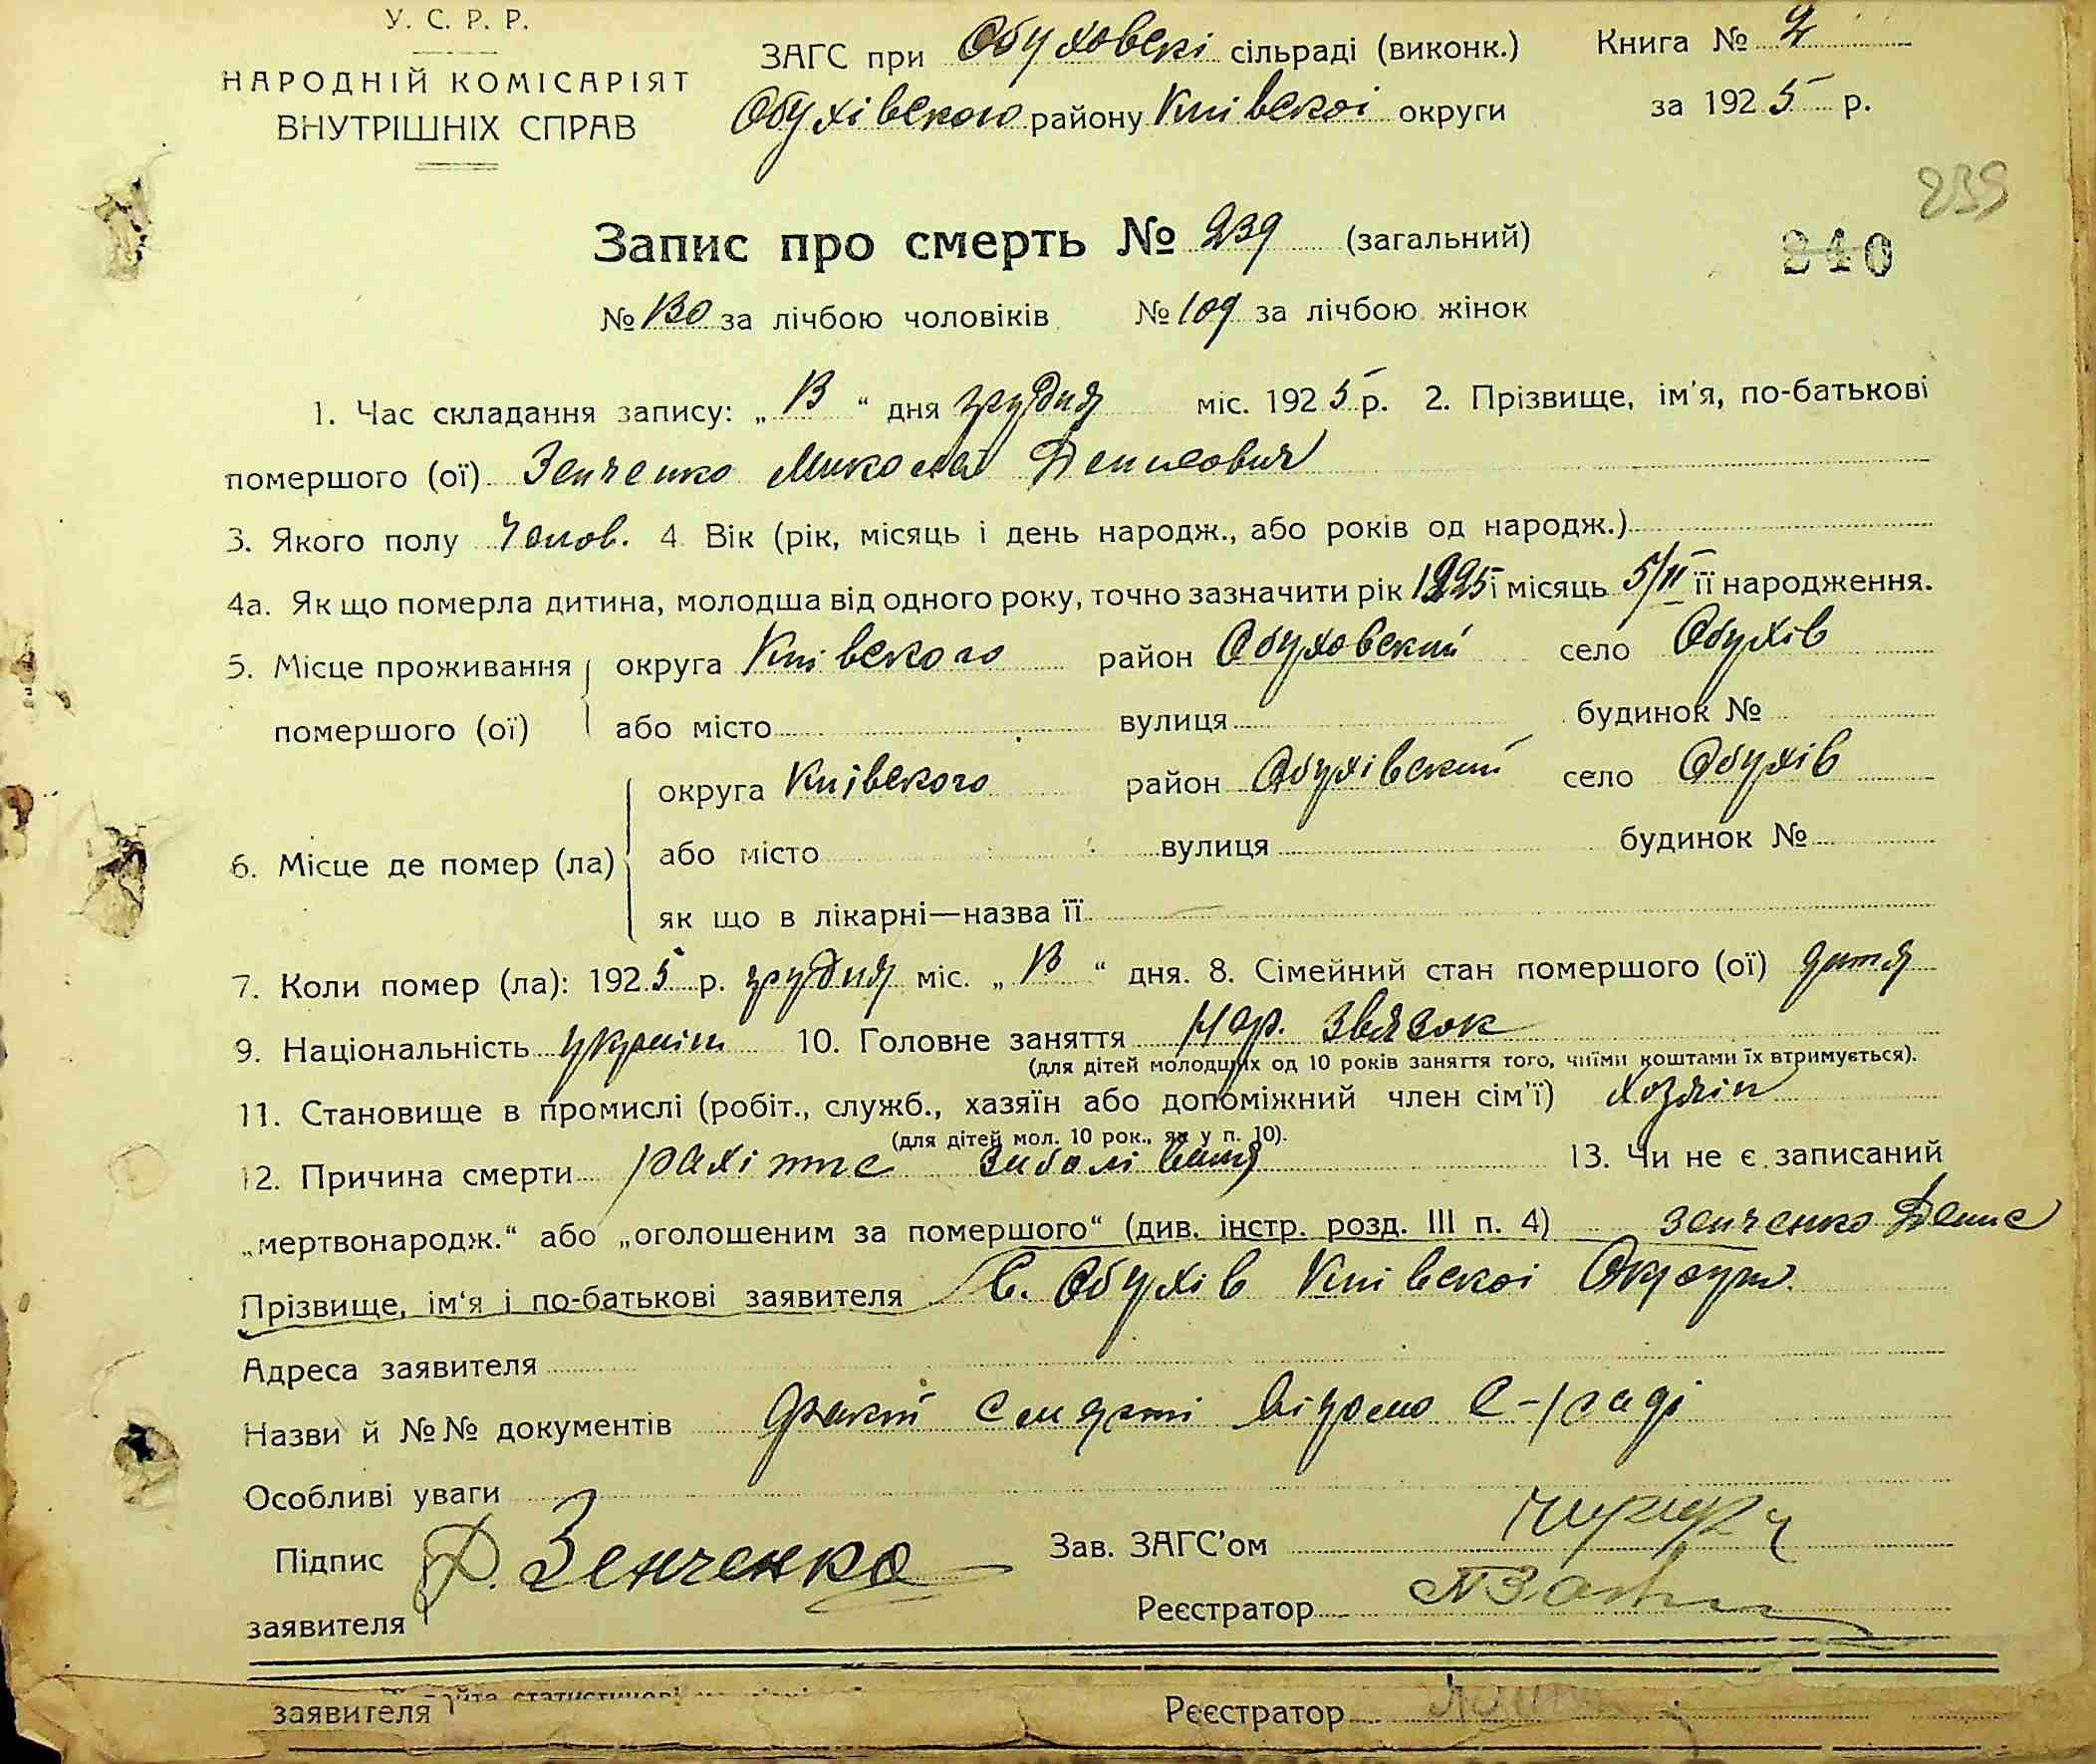 У. С. Р. Р.
НАРОДНІЙ КОМІСАРІЯТ
ВНУТРІШНІХ СПРАВ
ЗАГС при Обуховскі сільраді (виконк.)
Обухівского району Київскоі округи
Книга № 2
за 1925 р.
239
Запис про смерть № 239 (загальний)
240
№ 130 за лічбою чоловіків № 109 за лічбою жінок
1. Час складання запису: „ 13 “ дня грудня міс. 1925 р. 2. Прізвище, ім'я, по-батькові
помершого (ої) Зенченко Микола Денисович
3. Якого полу Чолов. 4. Вік (рік, місяць і день народж., або років од народж.)
4а. Як що померла дитина, молодша від одного року, точно зазначити рік 1925 і місяць 5/II її народження.
5. Місце проживання помершого (ої) округа Київского район Обуховский село Обухів
або місто вулиця будинок №
6. Місце де помер (ла) округа Київского район Обухівский село Обухів
або місто вулиця будинок №
як що в лікарні—назва її
7. Коли помер (ла): 1925 р. грудня міс. „ 13 “ дня. 8. Сімейний стан помершого (ої) дитя
9. Національність україн 10. Головне заняття Нар. звязок
(для дітей молодших од 10 років заняття того, чиїми коштами їх втримується).
11. Становище в промислі (робіт., служб., хазяїн або допоміжний член сім'ї) хозяін
(для дітей мол. 10 рок., як у п. 10).
12. Причина смерти рахітис 13. Чи не є записаний
„мертвонародж.“ або „оголошеним за помершого“ (див. інстр. розд. III п. 4) Зенченко Денис
Прізвище, ім'я і по-батькові заявителя с. Обухів Київскоі Округи.
Адреса заявителя
Назви й №№ документів факт смерті відомо С-раді
Особливі уваги
Підпис заявителя Д. Зенченко
Зав. ЗАГС'ом
Реєстратор
заявителя Реєстратор